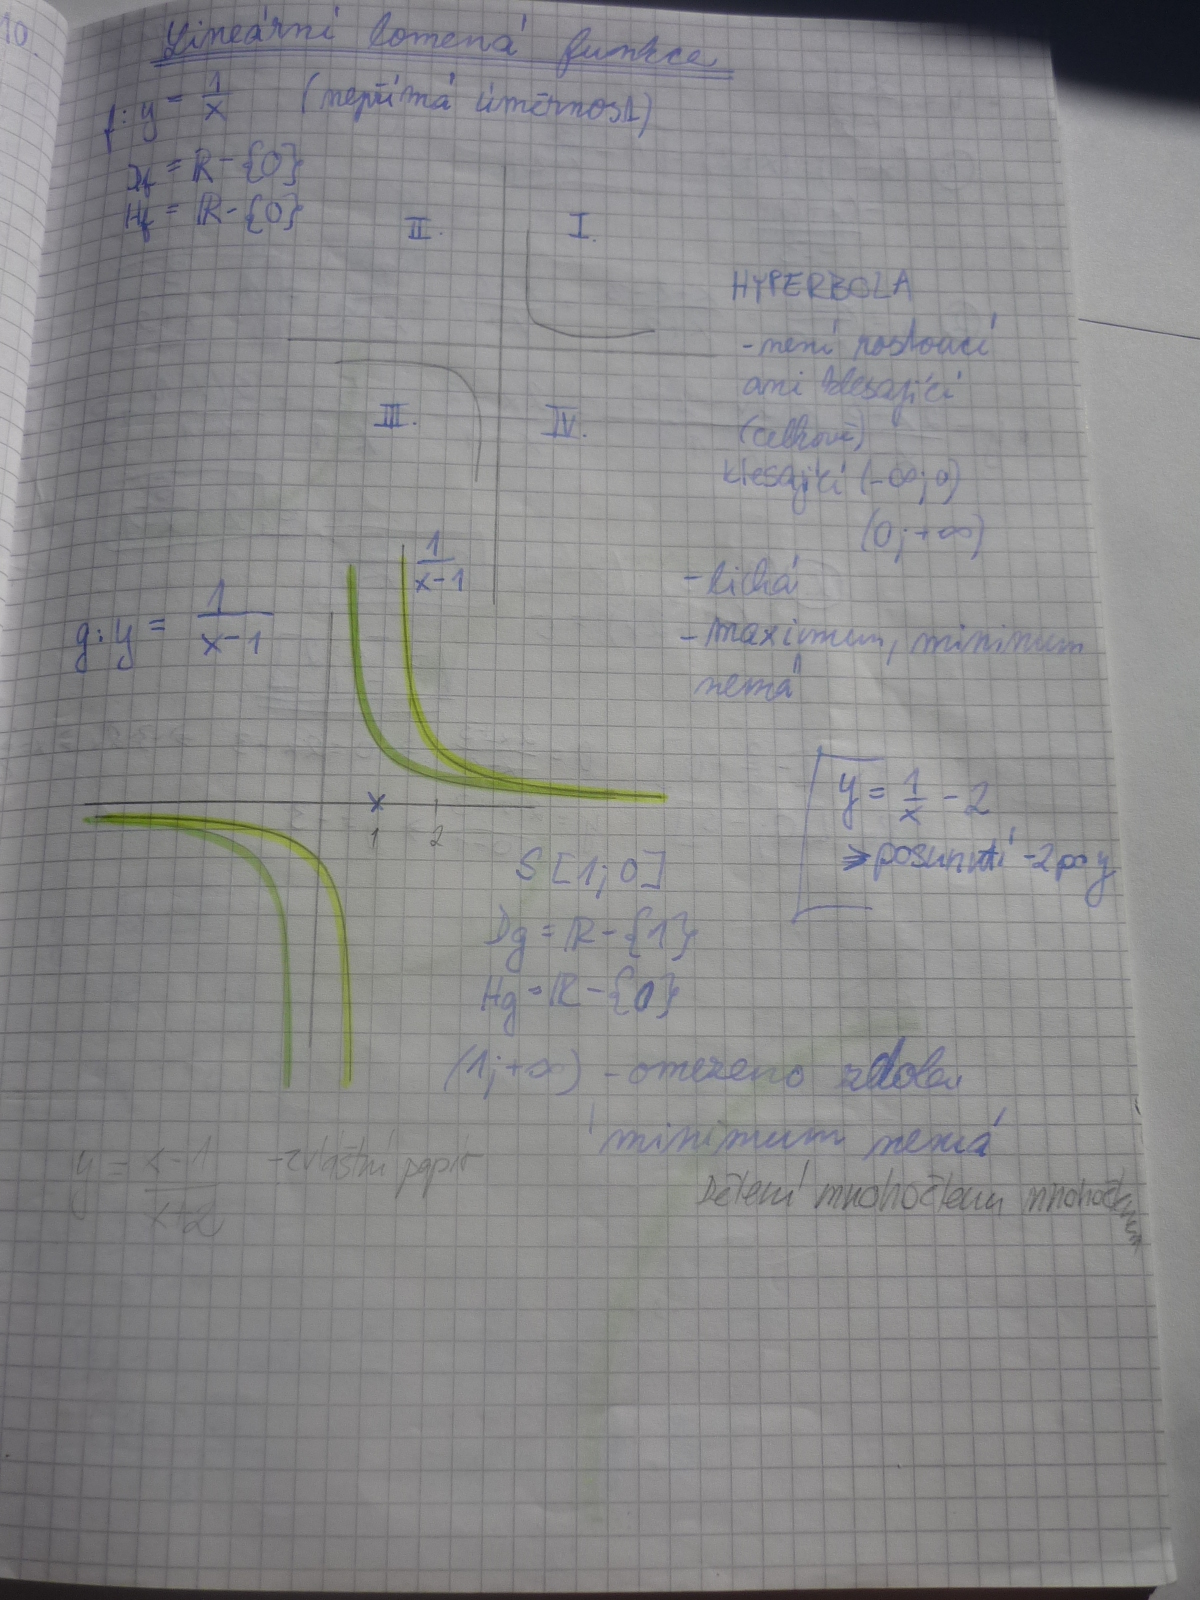 10
Lineární lomená funkce
f: y = 1/x (nepřímá úměrnost)
Df = R - {0}
Hf = R - {0}
II. I.
III. IV.
HYPERBOLA
- není rostoucí
ani klesající
(celkově)
klesající (-∞; 0)
(0; +∞)
- lichá
- maximum, minimum
nemá
1/(x-1)
g: y = 1/(x-1)
1 2
y = 1/x - 2
⇒ posunutí -2 po y
S [1; 0]
Dg = R - {1}
Hg = R - {0}
(1; +∞) - omezeno zdola
minimum nemá
y = (x-1)/(x+2) - zvláštní papír
Dělení mnohočlenu mnohočlenem